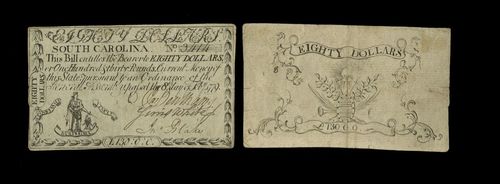 EIGHTY DOLLARS
SOUTH CAROLINA. No
This Bill entitles the Bearer to EIGHTY DOLLARS,
or One Hundred & thirty Pounds, Current Money of
this State, pursuant to an Ordinance of the
General Assembly passed the 8 day of Feb. 1779.
EIGHTY
DOLLARS
£130.0.0.
EIGHTY DOLLARS
£130.0.0